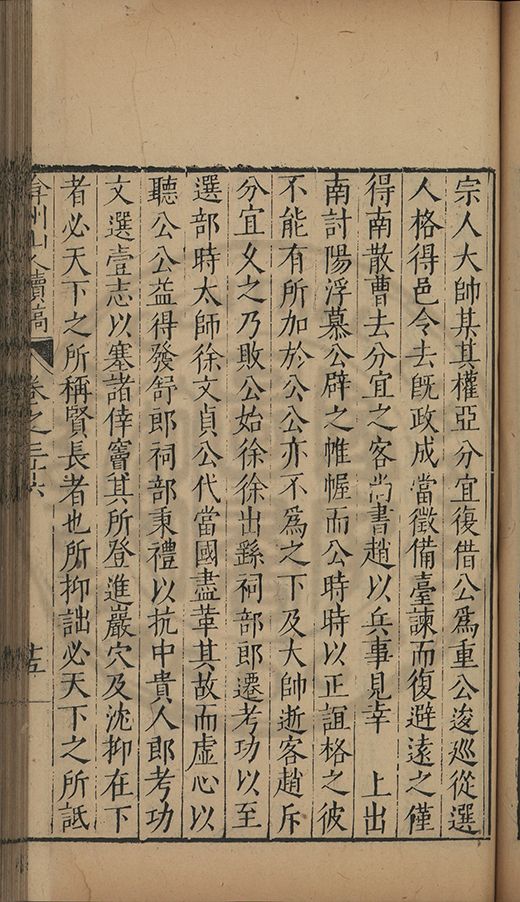 宗人大帥某其權亞分宜復借公爲重公逡巡從選
人格得邑令去旣政成當徵備臺諫而復避遠之僅
得南散曹去分宜之客尚書趙以兵事見幸　上出
南討陽浮慕公辟之帷幄而公時時以正誼格之彼
不能有所加於公公亦不爲之下及大帥逝客趙斥
分宜父之乃敗公始徐徐出繇祠部郎遷考功以至
選部時太師徐文貞公代當國盡革其故而虛心以
聽公公益得發舒郎祠部秉禮以抗中貴人郎考功
文選壹志以塞諸倖竇其所登進巖穴及沈抑在下
者必天下之所稱賢長者也所抑詘必天下之所詆
弇州山人續稿 卷之三十六 十五